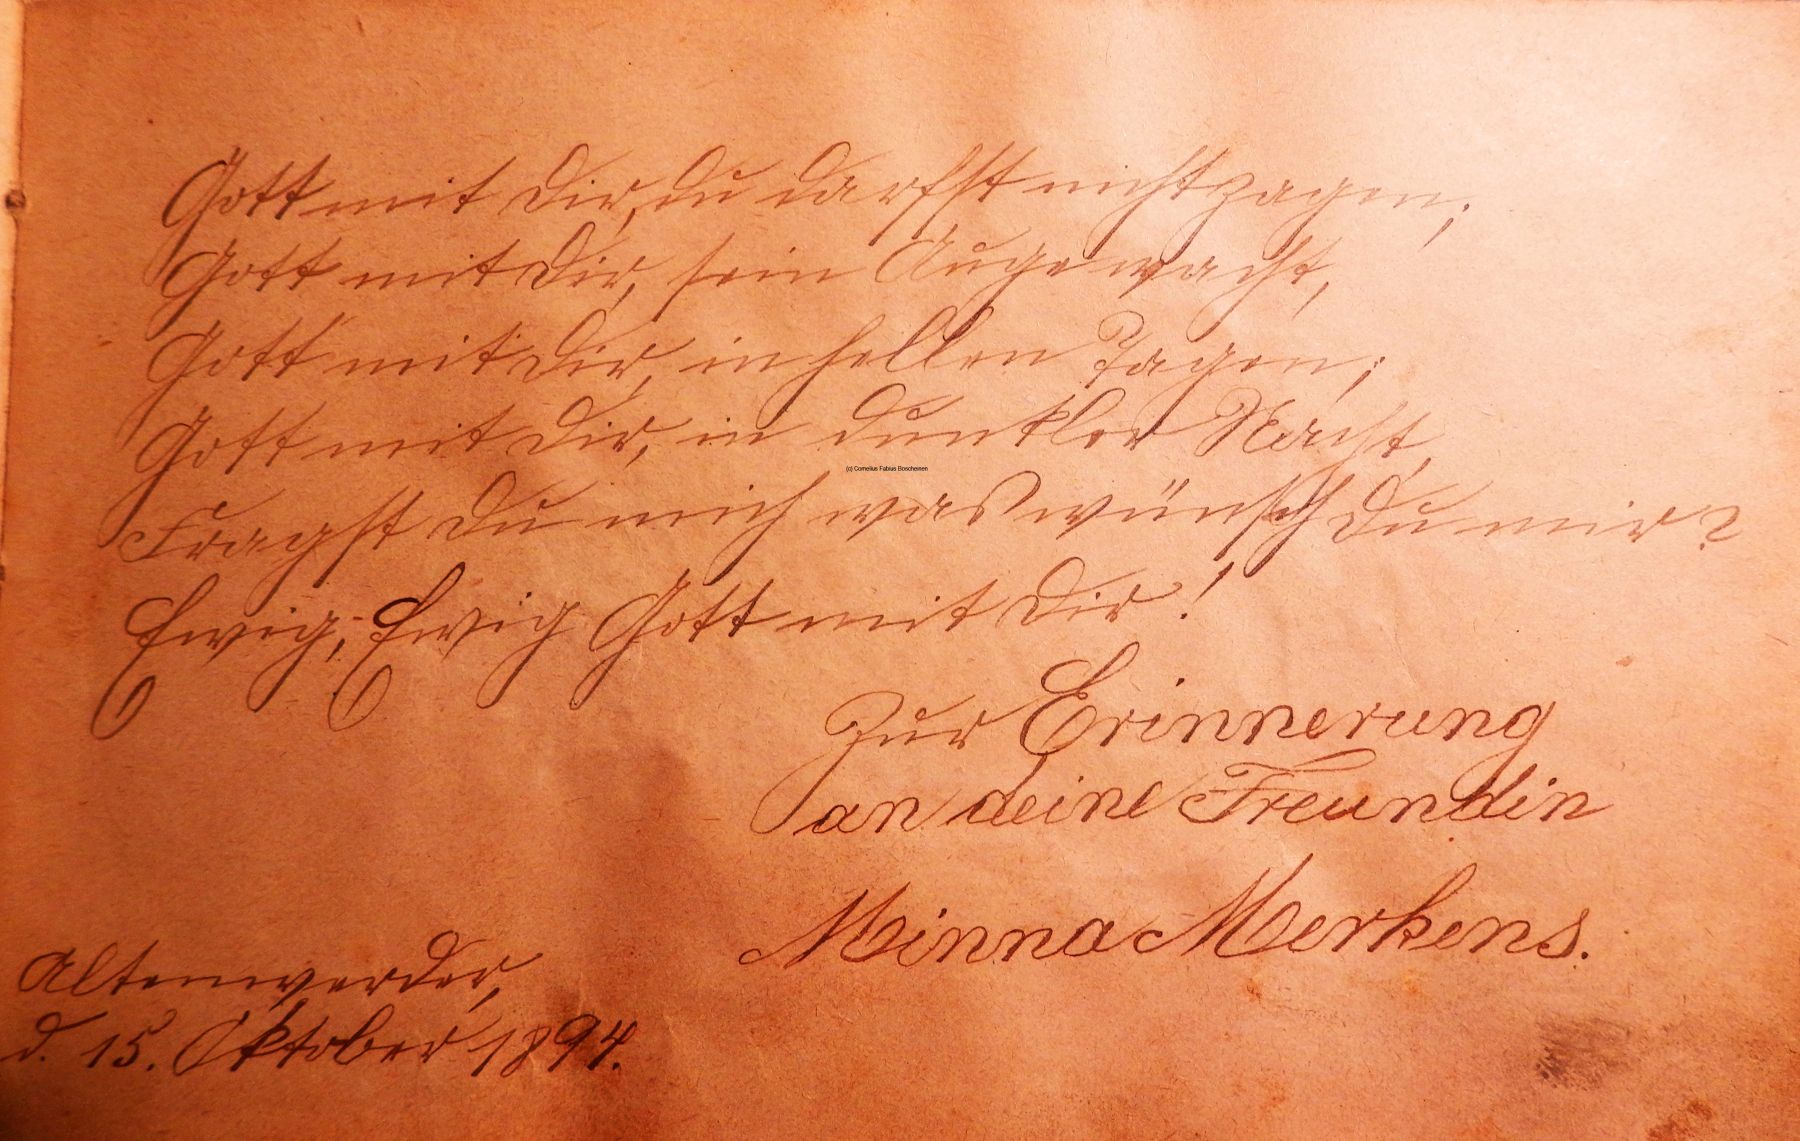 Gott mit dir, du darfst nicht zagen;
Gott mit dir, sein Auge wacht,
Gott mit dir, in hellen Tagen;
Gott mit dir, in dunkler Nacht,
(c) Cornelius Fabius Boscheinen
Fragst du mich was wünsch du mir?
Ewig, Ewig Gott mit dir!
Zur Erinnerung
an deine Freundin
Minna Merkens.
Altenwerder,
d. 15. Oktober 1894.